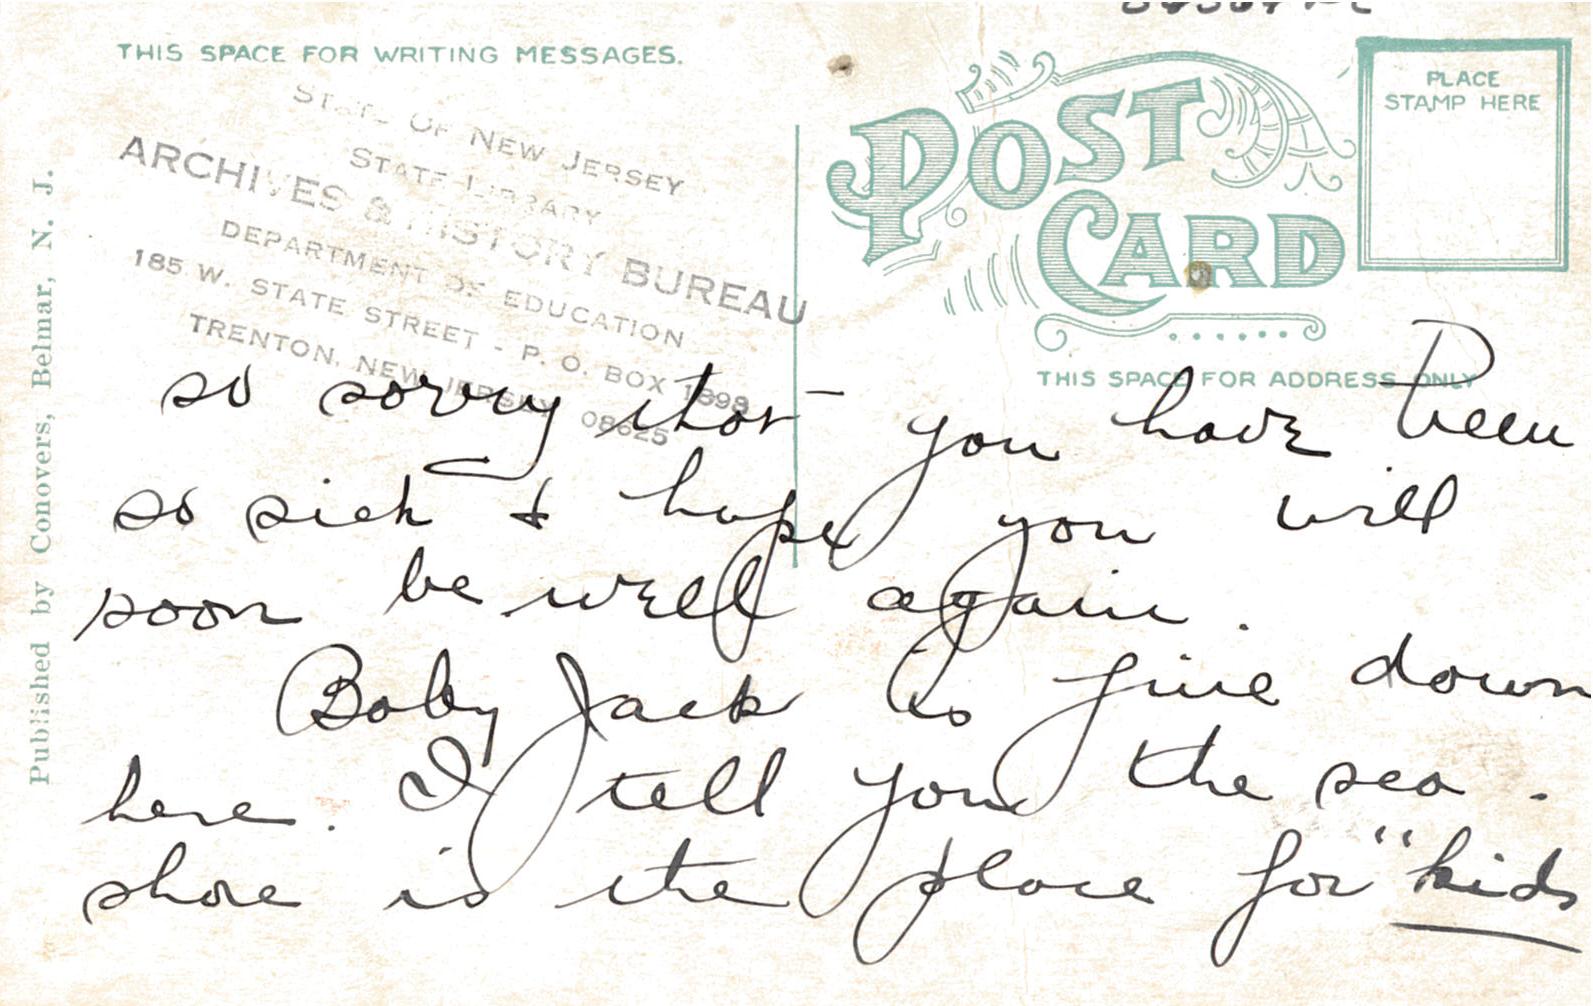 THIS SPACE FOR WRITING MESSAGES.
STATE OF NEW JERSEY
STATE LIBRARY
ARCHIVES & HISTORY BUREAU
DEPARTMENT OF EDUCATION
185 W. STATE STREET - P. O. BOX 1898
TRENTON, NEW JERSEY 08625
Published by Conovers, Belmar, N. J.
POST
CARD
PLACE
STAMP HERE
THIS SPACE FOR ADDRESS ONLY
so sorry that you have been
so sick & hope you will
soon be well again.
Baby Jack is fine down
here. I tell you the sea-
shore is the place for "kids